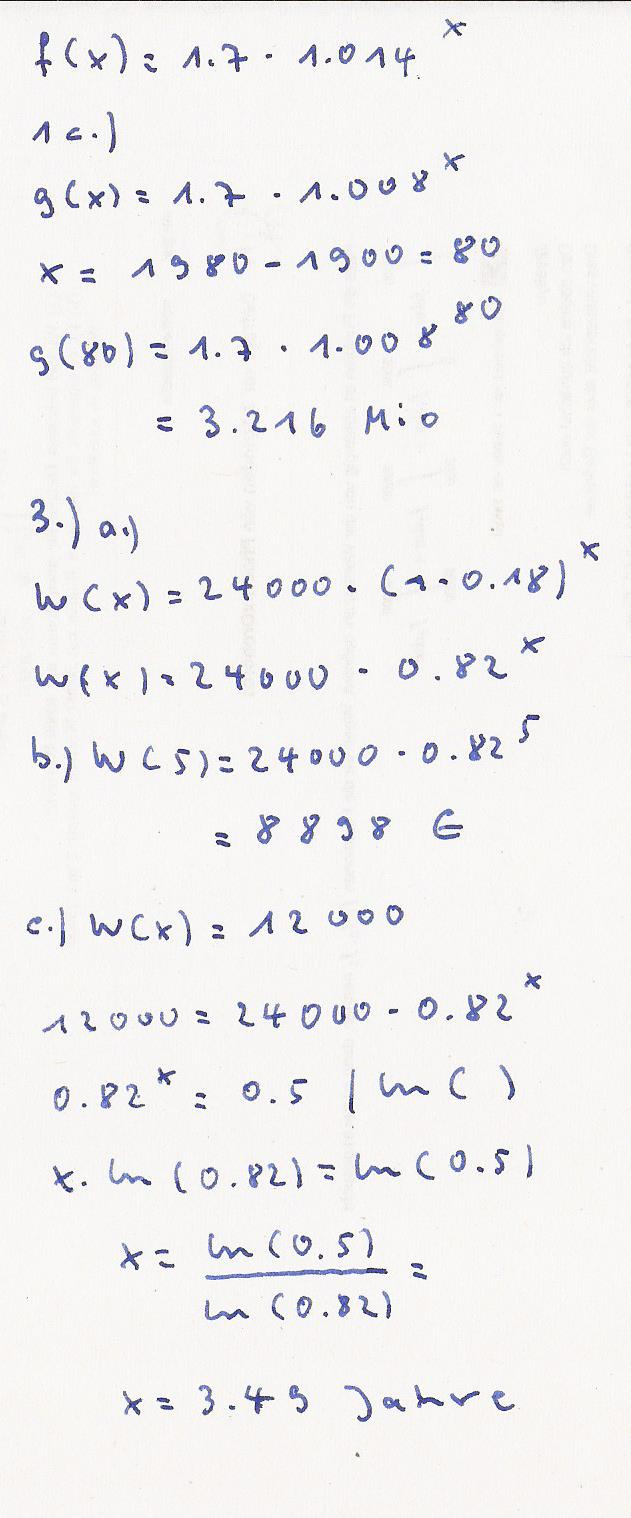 f(x) = 1.7 · 1.014^x
1 c.)
g(x) = 1.7 · 1.008^x
x = 1980 - 1900 = 80
g(80) = 1.7 · 1.008^80
= 3.216 Mio
3.) a.)
W(x) = 24000 · (1-0.18)^x
W(x) = 24000 · 0.82^x
b.) W(5) = 24000 · 0.82^5
= 8898 €
c.) W(x) = 12000
12000 = 24000 · 0.82^x
0.82^x = 0.5 | ln ( )
x · ln (0.82) = ln (0.5)
x = ln (0.5) / ln (0.82) =
x = 3.49 Jahre